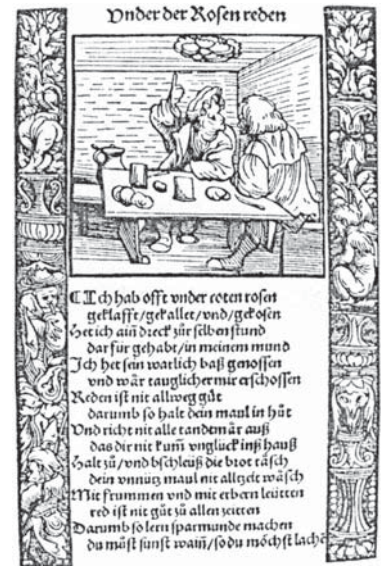 Vnder der Rosen reden
Ich hab offt vnder roten rosen
geklafft/gekallet/vnd/gekosen
Het ich ain dreck zůr selben stund
dar für gehabt/in meinem mund
Ich het sein warlich baß genossen
vnd wår tauglicher mir erschossen
Reden ist nit allweg gůt
darumb so halt dein maul in hůt
Vnd richt nit alle tandtmår auß
das dir nit kum̃ vnglück inß hauß
Halt zů/vnd bschleüß die brot tåsch
dein vnnütz maul nit allzeit wåsch
Mit frummen vnd mit erbern leütten
red ist nit gůt zů allen zeitten
Darumb so lern sparmunde machen
du můst sunst wain̄/so du möchst lachē